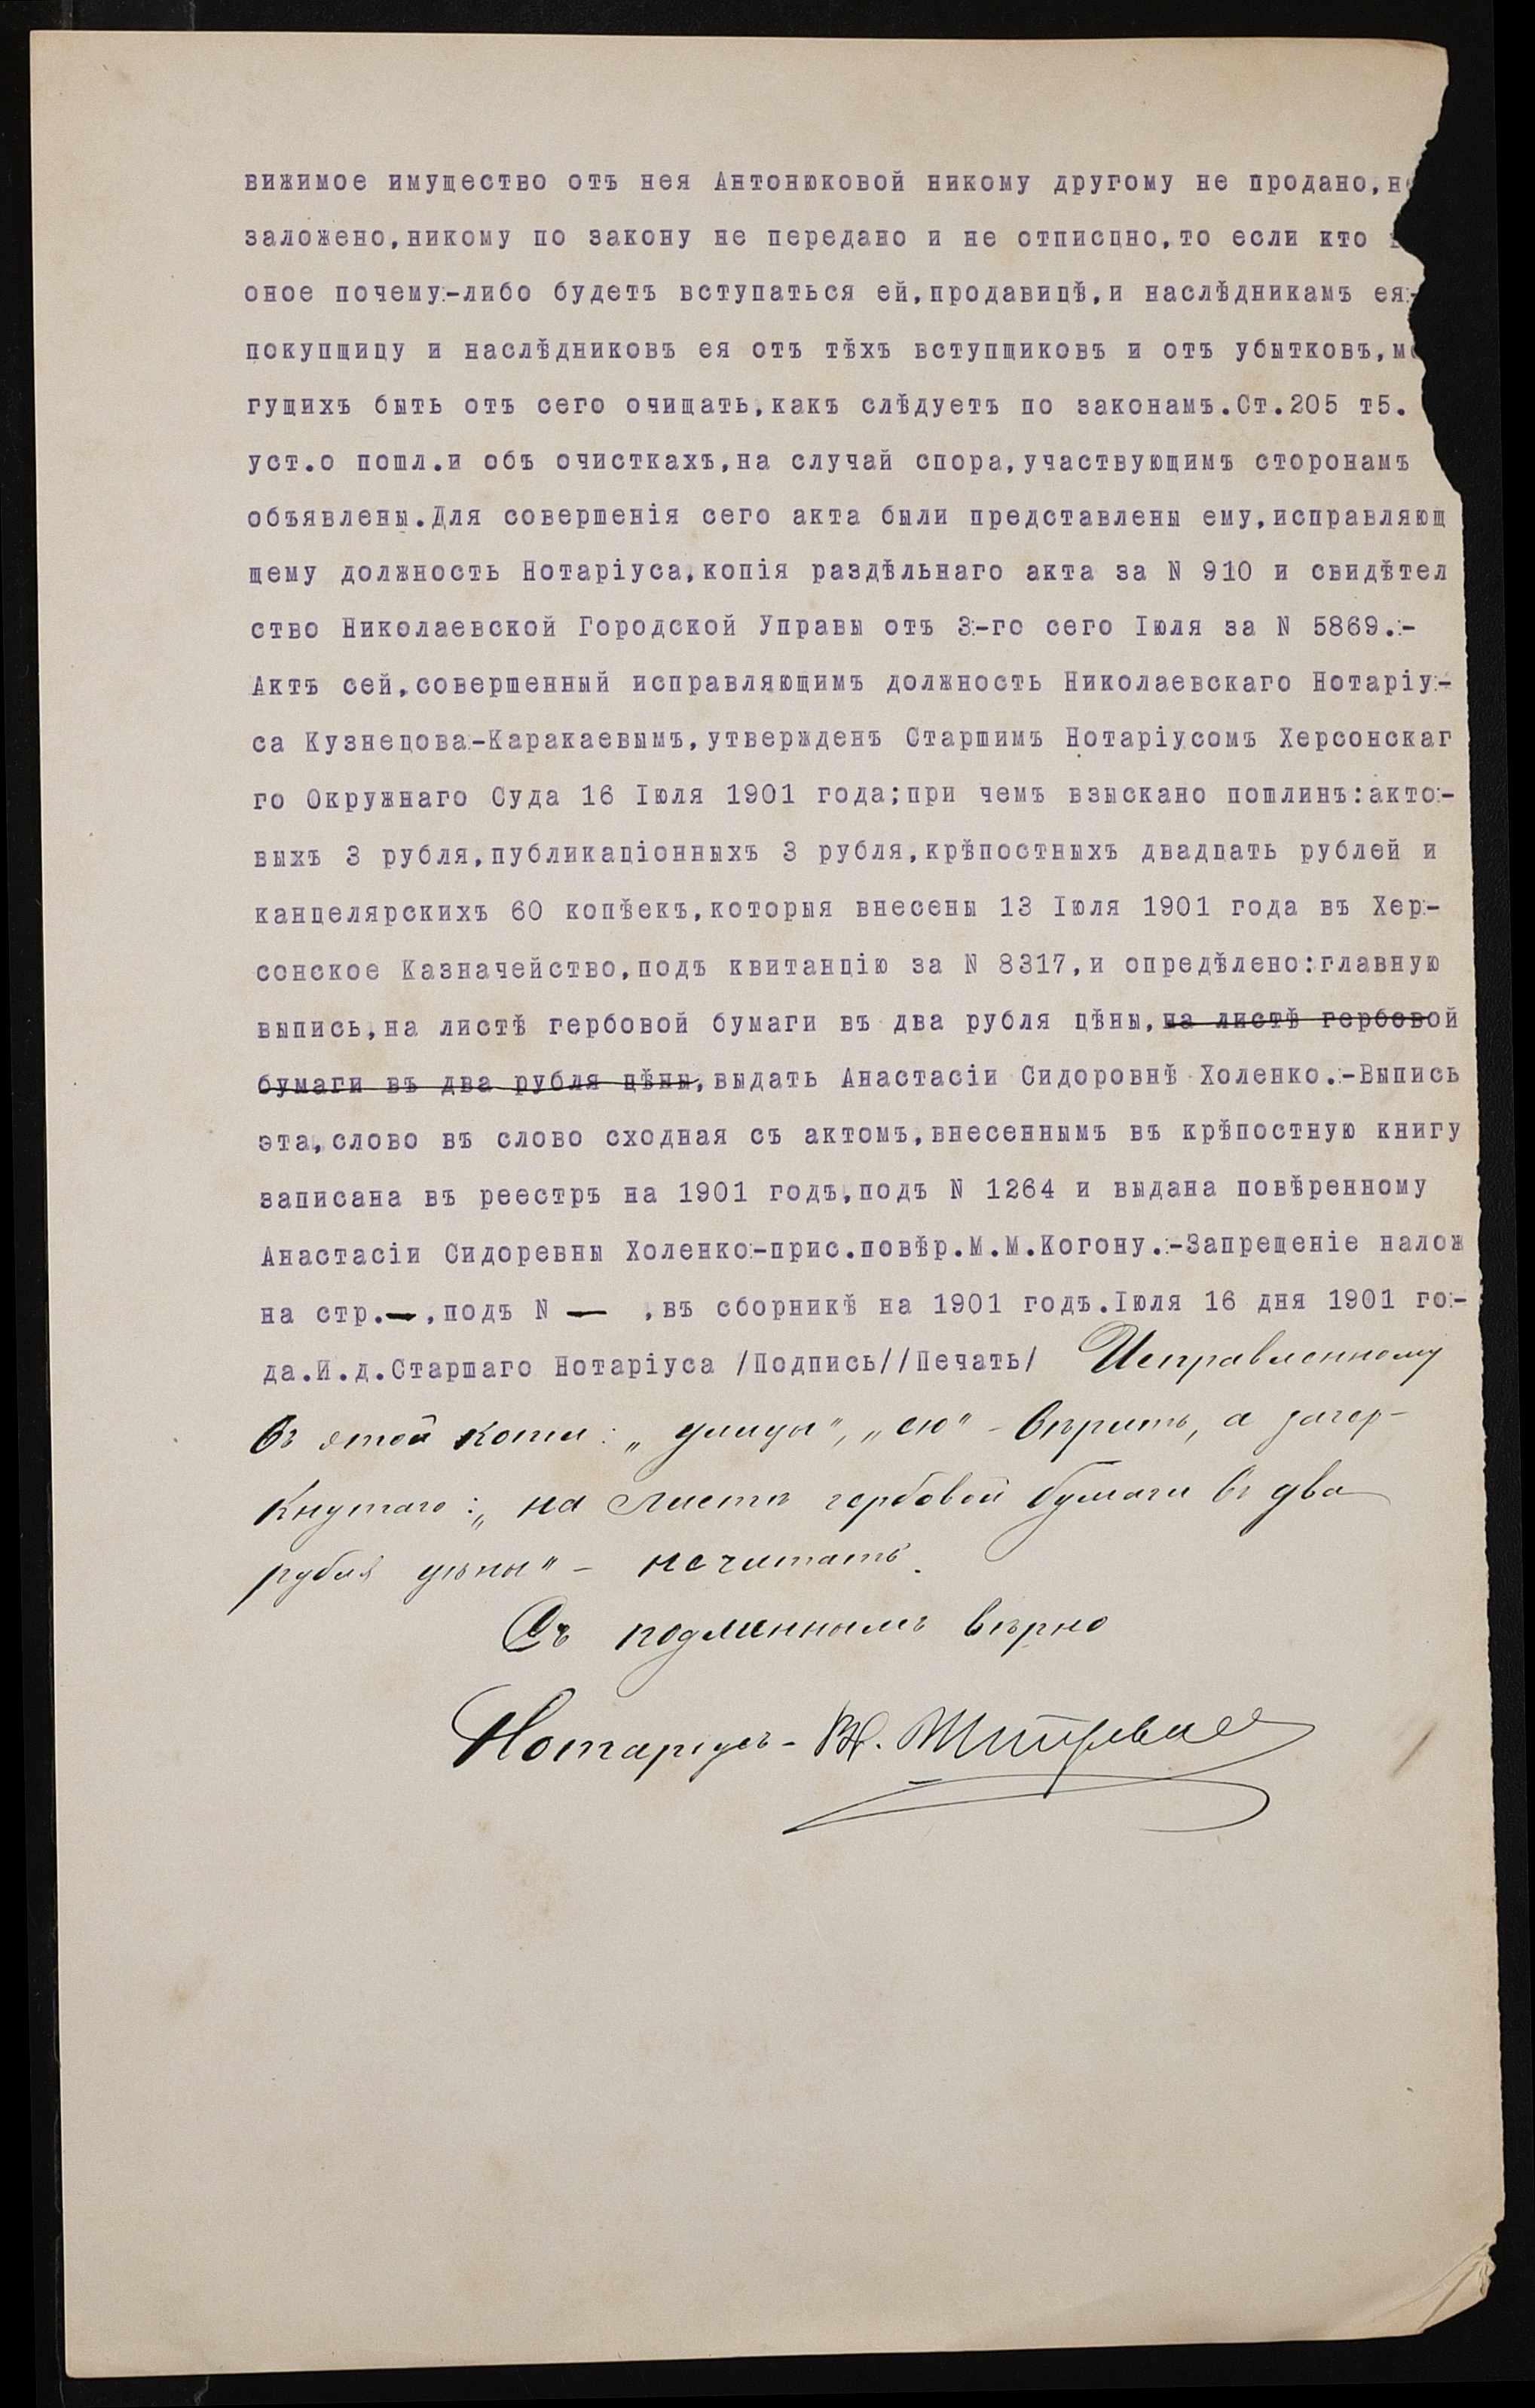 вижимое имущество отъ нея Антонюковой никому другому не продано,не
заложено,никому по закону не передано и не отписцно,то если кто
оное почему-либо будетъ вступаться ей,продавицѣ,и наслѣдникамъ ея-
покупщицу и наслѣдниковъ ея отъ тѣхъ вступщиковъ и отъ убытковъ,мо
гущихъ быть отъ сего очищать,какъ слѣдуетъ по законамъ.Ст.205 т5.
уст.о пошл.и объ очисткахъ,на случай спора,участвующимъ сторонамъ
объявлены.Для совершенія сего акта были представлены ему,исправляющ
щему должность Нотаріуса,копія раздѣльнаго акта за N 910 и свидѣтел
ство Николаевской Городской Управы отъ 3-го сего Іюля за N 5869.-
Актъ сей,совершенный исправляющимъ должность Николаевскаго Нотаріу-
са Кузнецова-Каракаевымъ,утвержденъ Старшимъ Нотаріусомъ Херсонскаг
го Окружнаго Суда 16 Іюля 1901 года;при чемъ взыскано пошлинъ:акто-
выхъ 3 рубля,публикаціонныхъ 3 рубля,крѣпостныхъ двадцать рублей и
канцелярскихъ 60 копѣекъ,которыя внесены 13 Іюля 1901 года въ Хер-
сонское Казначейство,подъ квитанцію за N 8317,и опредѣлено:главную
выпись,на листѣ гербовой бумаги въ два рубля цѣны,на листѣ гербовой
бумаги въ два рубля цѣны,выдать Анастасіи Сидоровнѣ Холенко.-Выпись
эта,слово въ слово сходная съ актомъ,внесеннымъ въ крѣпостную книгу
записана въ реестръ на 1901 годъ,подъ N 1264 и выдана повѣренному
Анастасіи Сидоревны Холенко-прис.повѣр.М.М.Когону.-Запрещеніе налож
на стр.—,подъ N — ,въ сборникѣ на 1901 годъ.Іюля 16 дня 1901 го-
да.И.д.Старшаго Нотаріуса /Подпись//Печать/ Исправленному
въ этой копіи: „улицы", „ею" - вѣрить, а зачер-
кнутаго: „на листѣ гербовой бумаги въ два
рубля цѣны" - не читать.
Съ подлиннымъ вѣрно
Нотаріусъ -